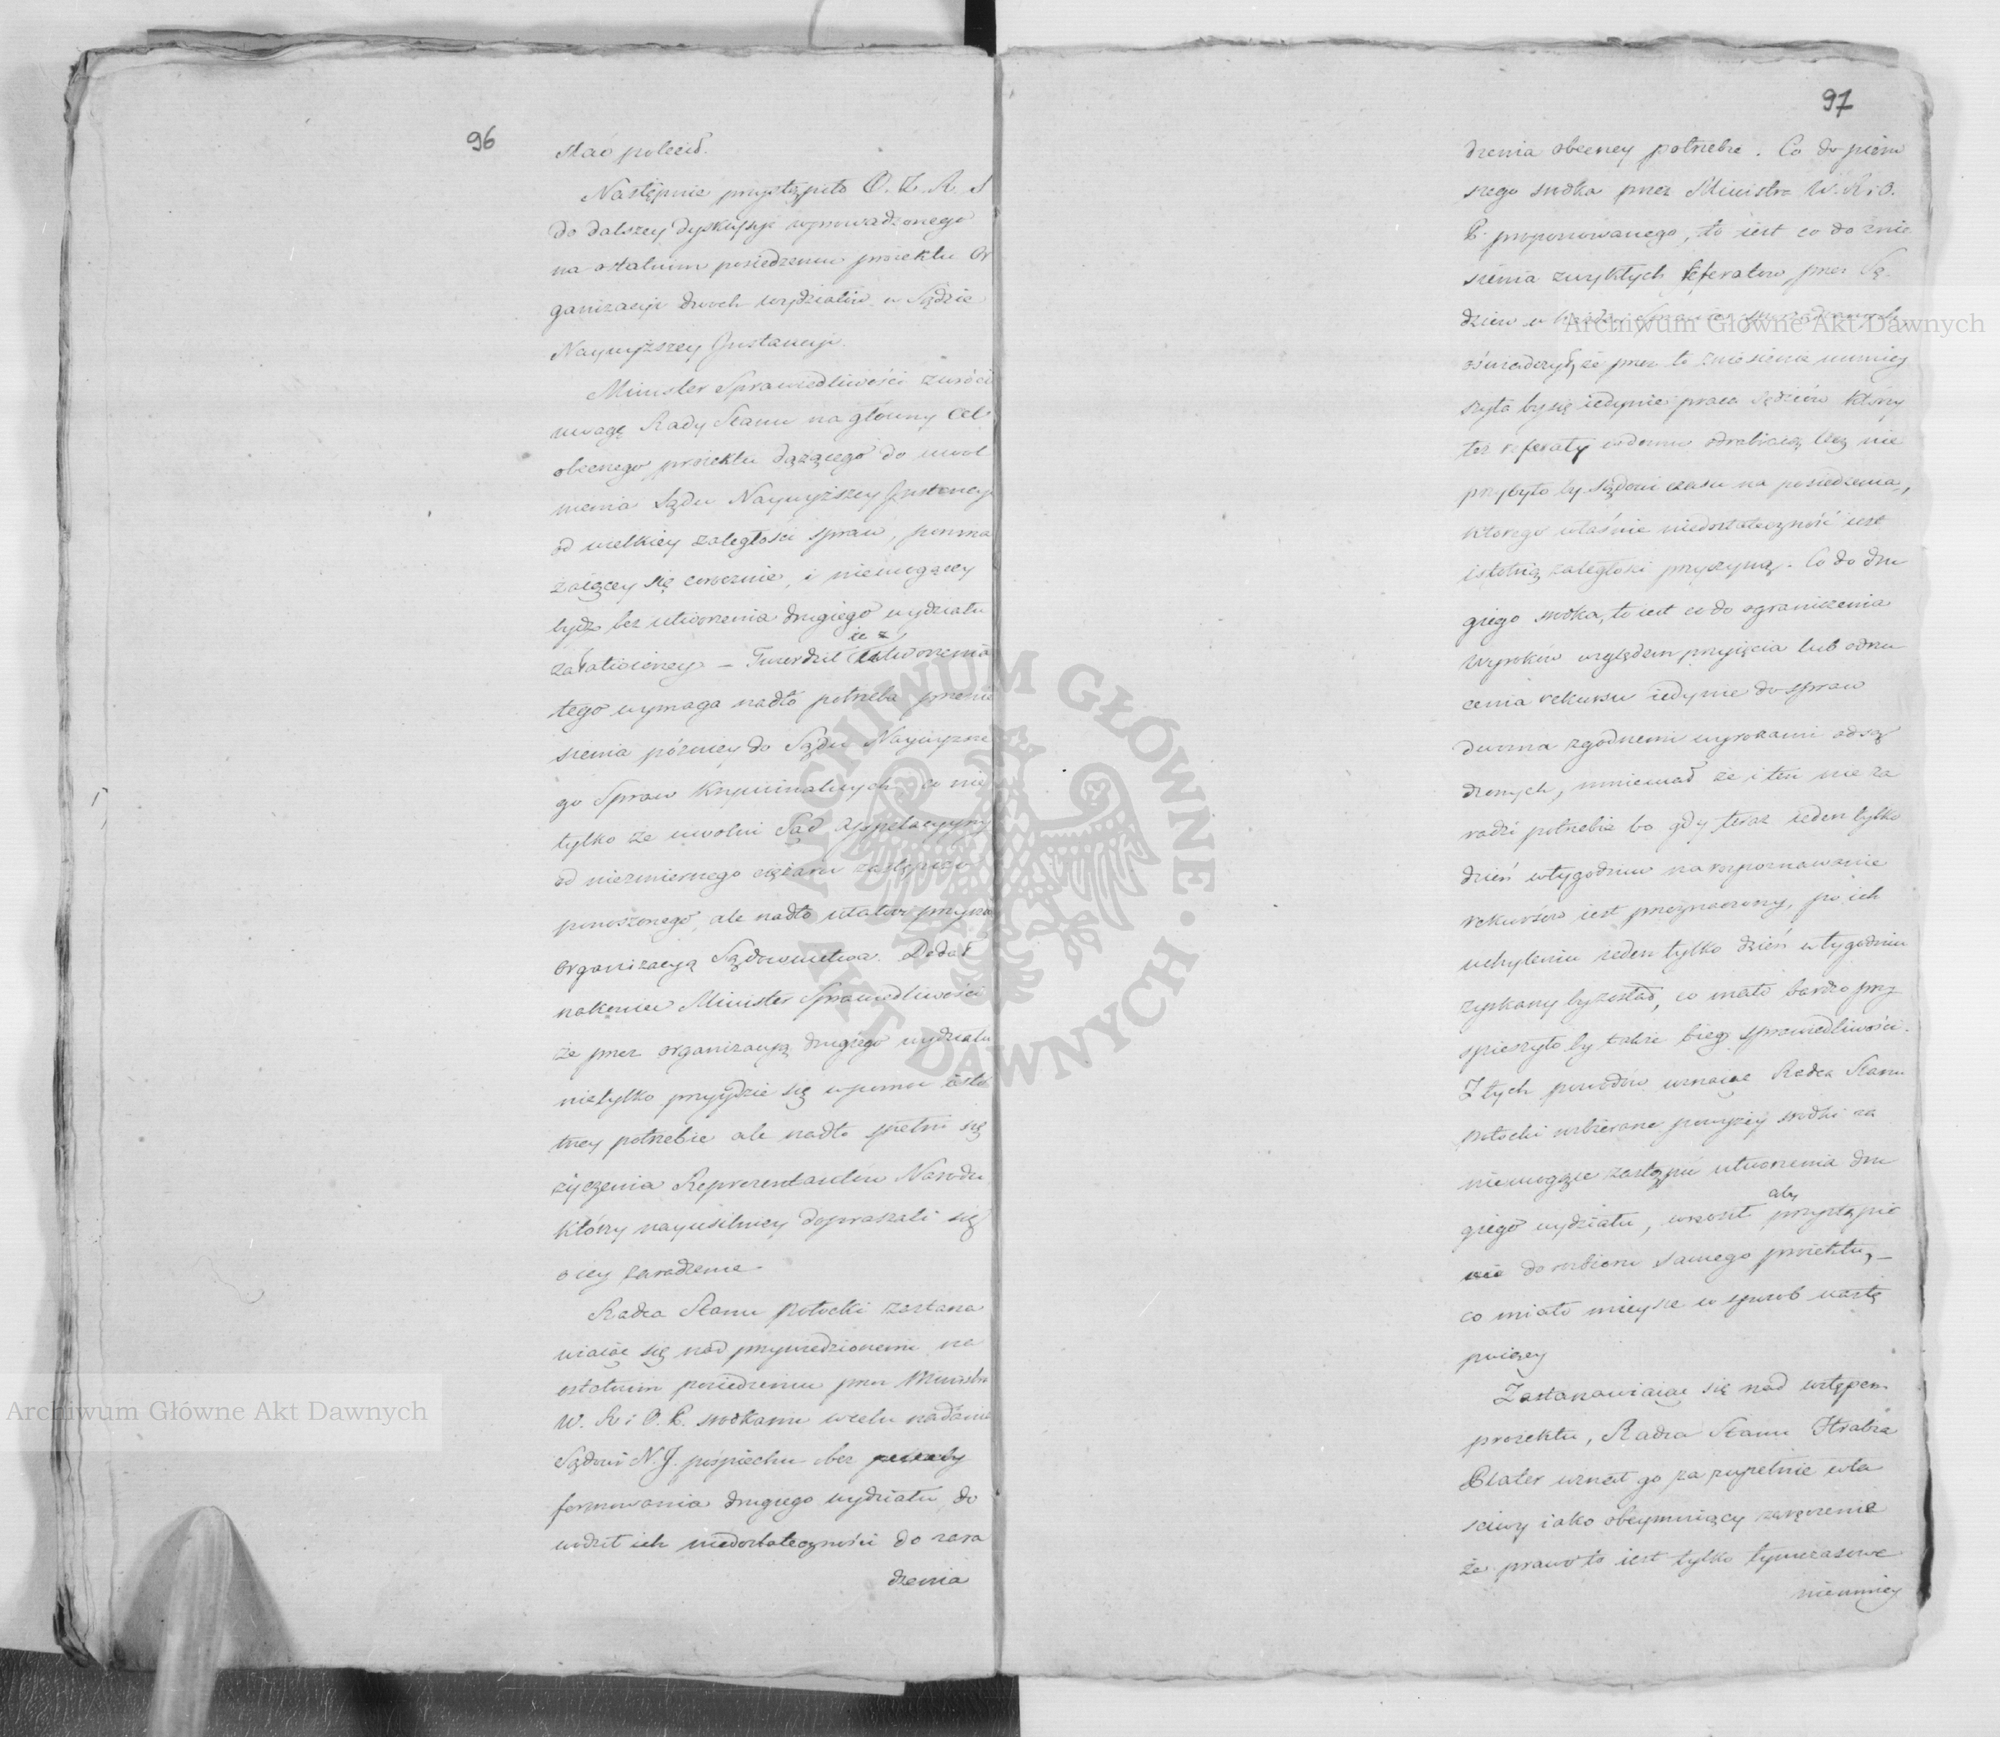 96
słać polecił.
Następnie przystąpiło O. Z. R. S
do dalszey dyskussyi wprowadzonego
na ostatnim posiedzeniu proiektu Or
ganizacyi dwoch wydziałów w Sądzie
Naywyższey Instancyi.
Minister Sprawiedliwości zwrócił
uwagę Rady Stanu na główny Cel
obecnego proiektu dążącego do uwol
nienia Sądu Naywyższey Instancyi
od wielkiey zaległości spraw, pomna
żaiącey się corocznie, i niemogącey
bydź bez utworzenia drugiego wydziału
załatwioney – Twierdził że utworzenia
tego wymaga nadto potrzeba przenie
sienia późniey do Sądu Naywyższe
go Spraw Kryminalnych co nie
tylko że uwolni Sąd Appellacyyny
od niezmiernego ciężaru zastępczo
ponoszonego, ale nadto ułatwi przyszłą
organizacyą Sądownictwa. Dodał
nakoniec Minister Sprawiedliwości
że przez organizacyą drugiego wydziału
nietylko przyydzie się w pomoc isto
tney potrzebie ale nadto spełni się
życzenia Reprezentantów Narodu
którzy nayusilniey dopraszali się
o iey zaradzenie.
Radca Stanu Potocki zastana
wiaiąc się nad przywiedzionemi na
ostatnim posiedzeniu przez Ministra
W. R. i O. P. srodkami w celu nadania
Sądowi N. I. pośpiechu bez
formowania drugiego wydziału, do
wodził ich niedostateczności do zara
dzenia
97
dzenia obecney potrzebie. Co do pierw
szego srodka przez Ministra W. R. i O.
P. proponowanego, to iest co do znie
sienia zwykłych referatow przez Sę-
dziow w
oświadczył, że przez to zniesienie zmniey
szyła by się iedynie praca sędziów którzy
też referaty w domu odrabiaią lecz nie
przybyło by Sądowi czasu na posiedzenia,
którego właśnie niedostateczność iest
istotną zaległości przyczyną. Co do dru
giego srodka, to iest co do ograniczenia
wyroków względem przyięcia lub odrzu
cenia rekursu iedynie do spraw
dwoma zgodnemi wyrokami osą
dzonych, mniemał że i ten nie za
radzi potrzebie bo gdy teraz ieden tylko
dzień w tygodniu na rozpoznawanie
rekursów iest przeznaczony, po ich
uchyleniu ieden tylko dzień w tygodniu
zyskany by został, co mało bardzo przy
spieszyło by także bieg sprawiedliwości.
Z tych powodów uznaiąc Radca Stanu
Potocki wzbierane powyżey srodki za
niemogące zastąpić utworzenia dru
giego wydziału, wnosił aby przystąpić
do rozbioru samego proiektu, –
co miało mieysce w sposób nastę
puiący
Zastanawiaiąc się nad wstępem
proiektu, Radca Stanu Hrabia
Plater uznał go za zupełnie wła
sciwy i iako obeymuiący zaręczenie
że prawo to iest tylko tymczasowe
niemniey
Archiwum Główne Akt Dawnych
Archiwum Główne Akt Dawnych
ARCHIWUM GŁÓWNE · AKT DAWNYCH ·